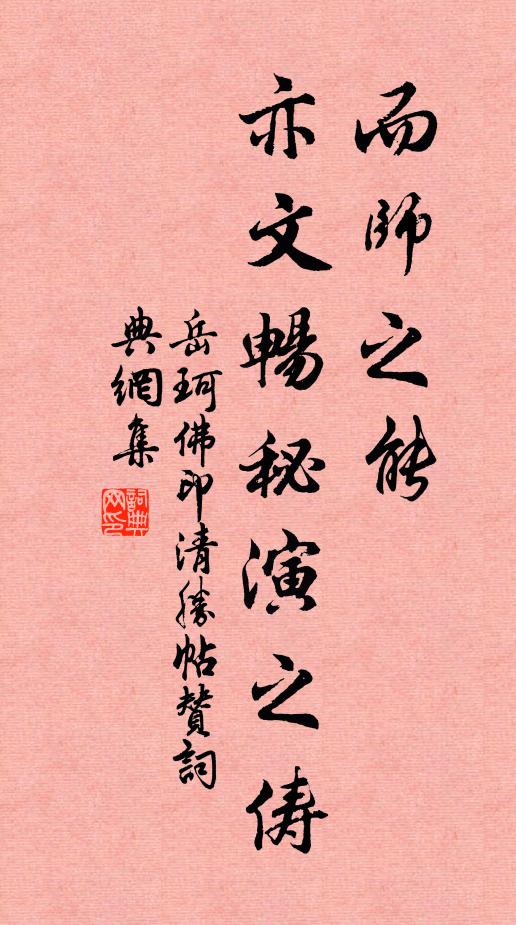 而師之能
亦文暢秘演之儔
岳珂佛印清勝帖贊詞
典網集
詞典網印